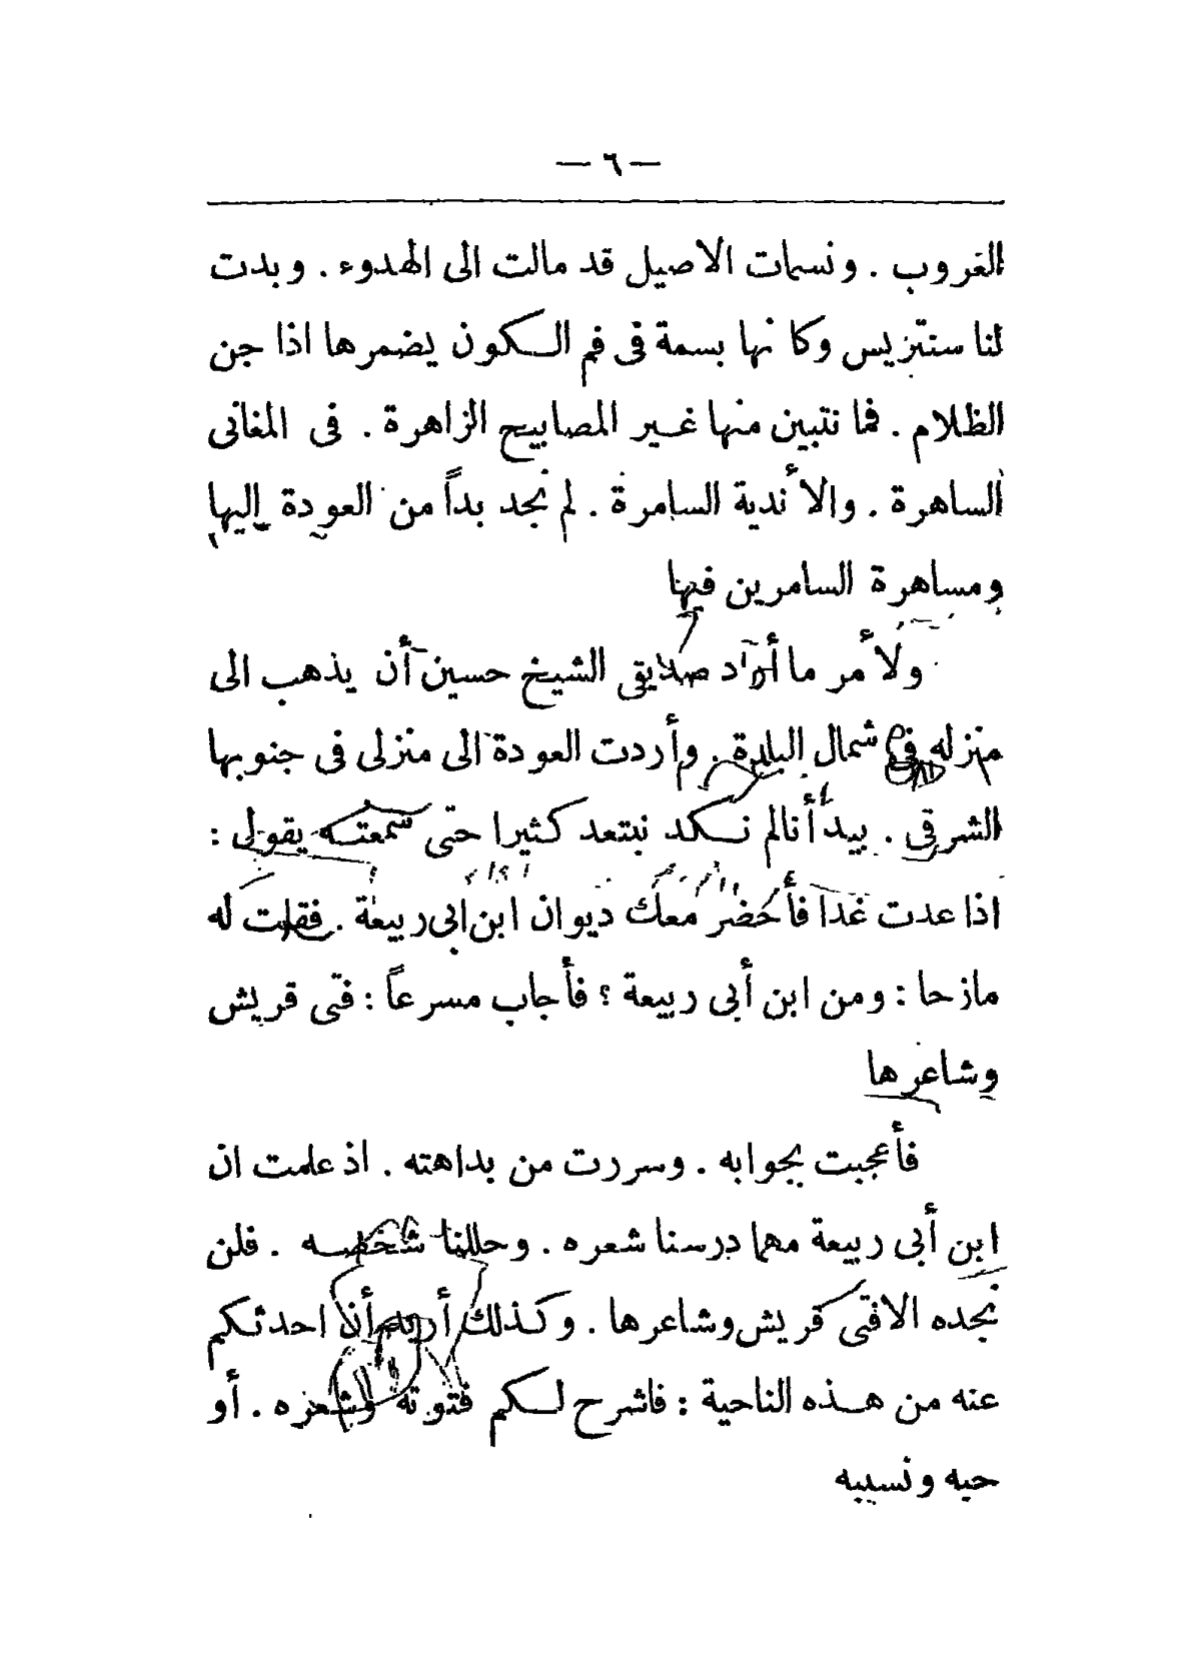 — ٦ —
الغروب . ونسمات الاصيل قد مالت الى الهدوء . وبدت
لنا سنتريس وكانها بسمة فى فم الكون يضمرها اذا جن
الظلام . فما نتبين منها غير المصابيح الزاهرة . فى المغانى
الساهرة . والأندية السامرة . لم نجد بداً من العودة إليها
ومساهرة السامرين فيها
ولأمر ما أراد صديقى الشيخ حسين أن يذهب الى
منزله فى شمال البلدة . وأردت العودة الى منزلى فى جنوبها
الشرقى . بيد أنا لم نكد نبتعد كثيرا حتى سمعته يقول :
اذا عدت غدا فأحضر معك ديوان ابن ابى ربيعة . فقلت له
مازحا : ومن ابن أبى ربيعة ؟ فأجاب مسرعاً : فتى قريش
وشاعرها
فأعجبت بجوابه . وسررت من بداهته . اذ علمت ان
ابن أبى ربيعة مهما درسنا شعره . وحللنا شخصه . فلن
نجده الا فتى قريش وشاعرها . وكذلك أريد أن احدثكم
عنه من هذه الناحية : فاشرح لكم فتوته وشعره . أو
حبه ونسيبه